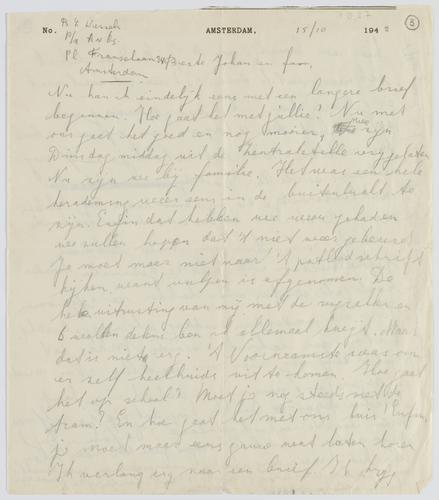 No. AMSTERDAM, 15/10 194
p/a
Pl Franschelaan
Amsterdam Beste Johan en fam,
Nu kan ik eindelijk eens met een langere brief
beginnen. Hoe gaat het met jullie? Nu met
ons gaat het goed en nog mooier, zijn
Dinsdag middag uit de Zentralstelle vrijgelaten
Nu zijn we bij familie. Het was een hele
herademing weer eens in de buitenlucht te
zijn. Enfin dat hebben we weer gehad en
we zullen hopen dat 't niet weer gebeurd.
Je moet maar niet naar 't potlodschrift
kijken, want vulpen is afgenomen. De
hele uitrusting van mij met de rugzak en
6 wollen dekens ben ik allemaal kwijt. Maar
dat is niets erg. 't Voornaamste was om
er zelf heelhuids uit te komen. Hoe gaat
het op school? Moet je nog steeds met de
tram? En hoe gaat het met ons huis? Enfin,
je moet maar eens gauw wat laten horen
Ik verlang erg naar een brief. Ik